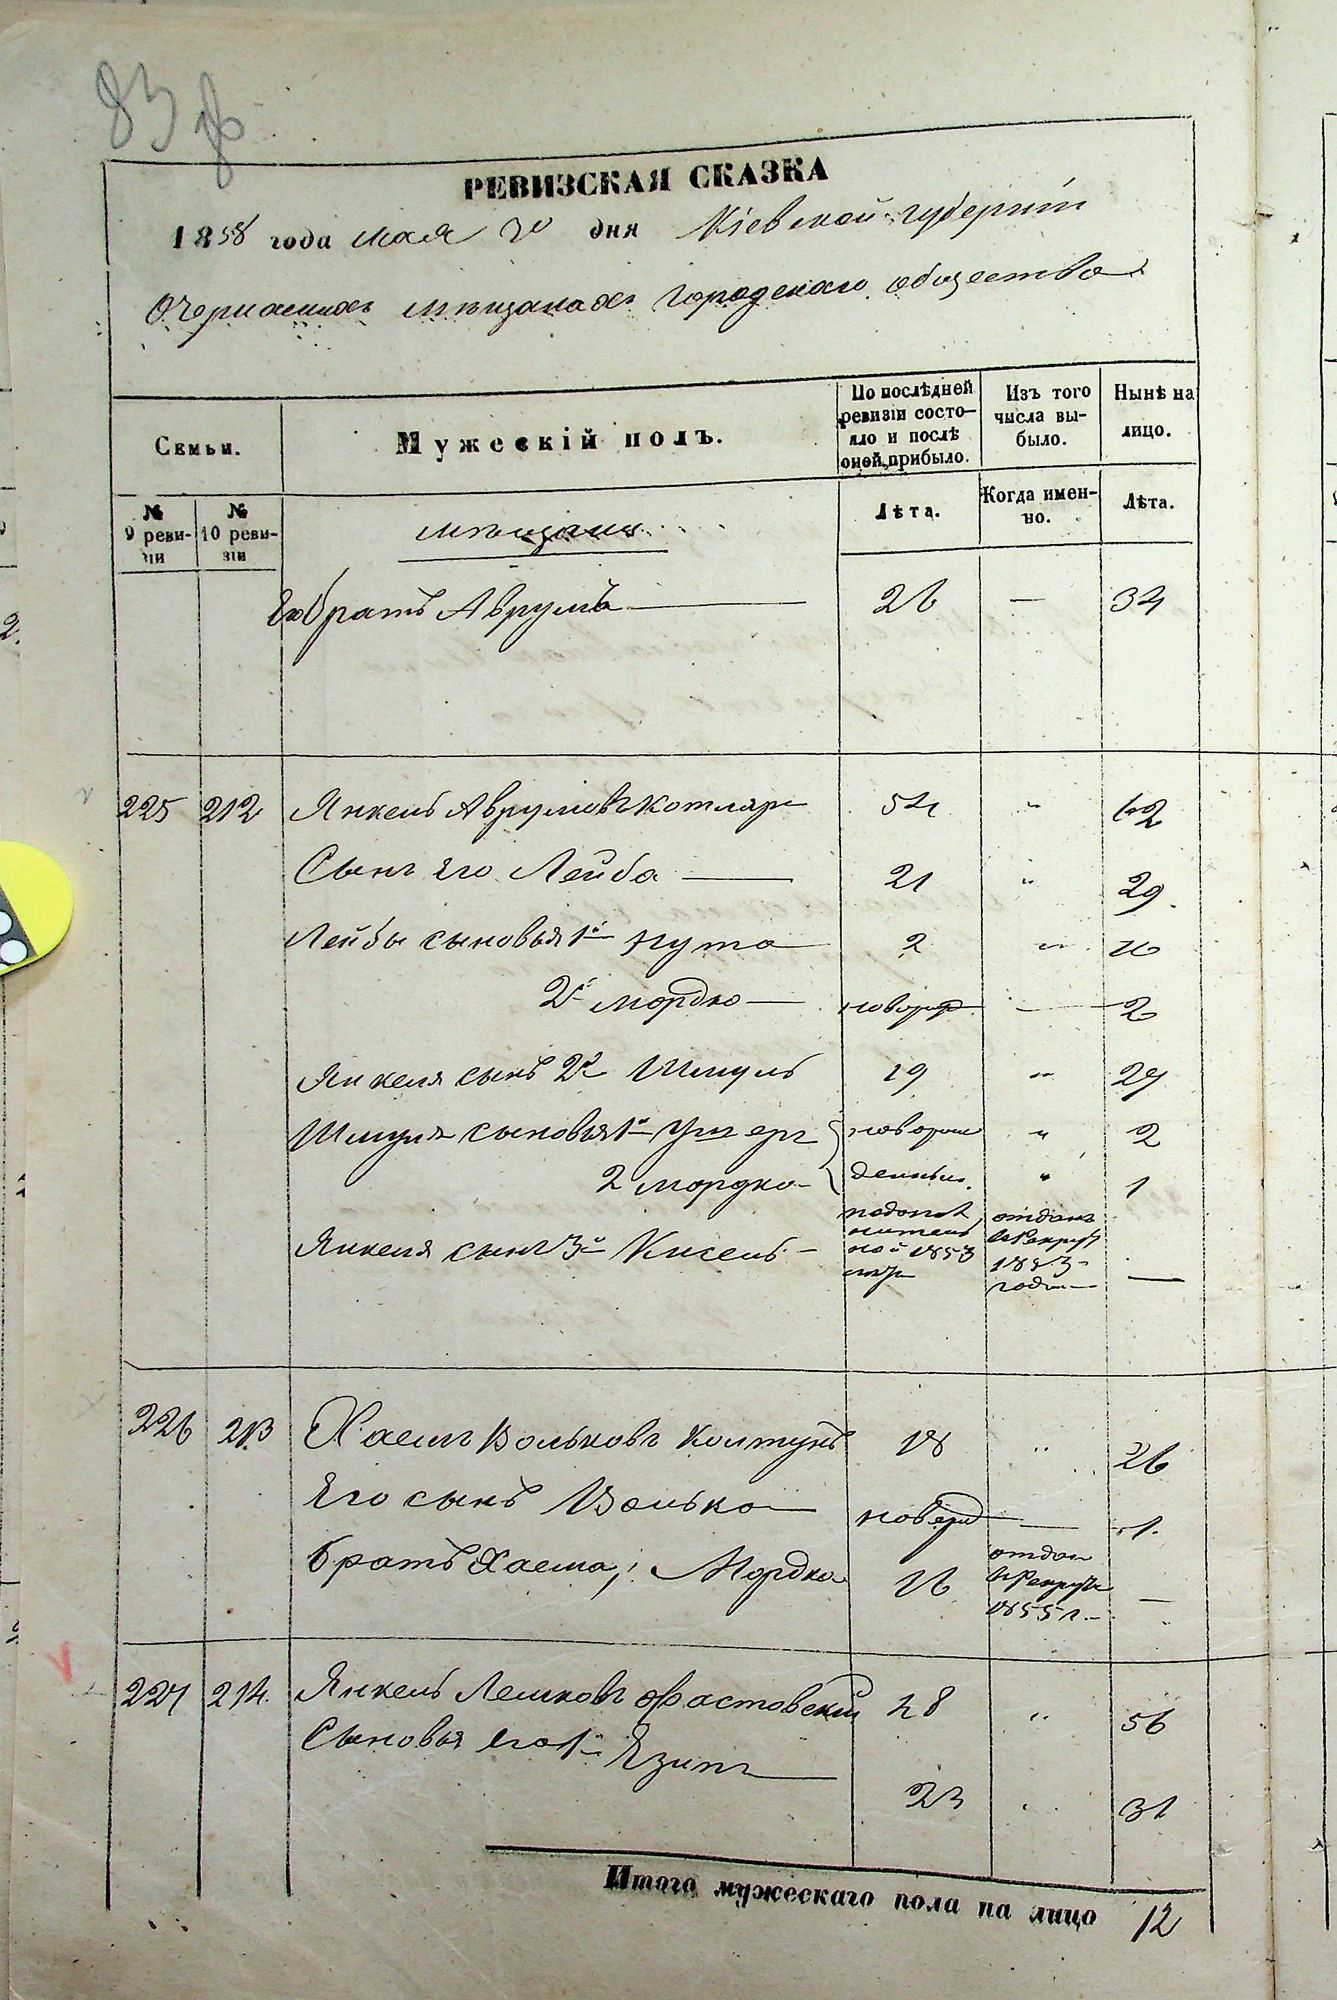 83
РЕВИЗСКАЯ СКАЗКА
1858 года мая 20 дня Кіевской губерніи
О Черкасскихъ мѣщанахъ Городскаго общества
Семьи.
Мужескій полъ.
По послѣдней ревизіи состояло и послѣ оной прибыло.
Изъ того числа выбыло.
Нынѣ на лицо.
№ 9 ревизіи
№ 10 ревизіи
мѣщане
Лѣта.
Когда именно.
Лѣта.
Его братъ Аврумъ — 26 — 34
225 212 Янкель Аврумовъ Котляръ 54 " 62
Сынъ его Лейба — 21 " 29.
Лейбы сыновья 1й Нута 2 " 10
2й Мордко — новорож. — 2
Янкеля сынъ 2й Шмуль 19 " 27
Шмуля сыновья 1й Ушеръ новорож " 2
2 Мордко денные. " 1
Янкеля сынъ 3й Кисель — по дополнительной 1853 отданъ в рекруты 1853 года —
226 213 Хаимъ Вольковъ Колтунъ 18 " 26
Его сынъ Волько — новорожд — 1.
братъ Хаема, Мордко 16 отдан в рекруты 1855 г. —
227 214. Янкель Лейковъ Фастовскій 48 " 56
Сыновья его 1й Язипъ — 23 . 31
Итого мужескаго пола на лицо 12